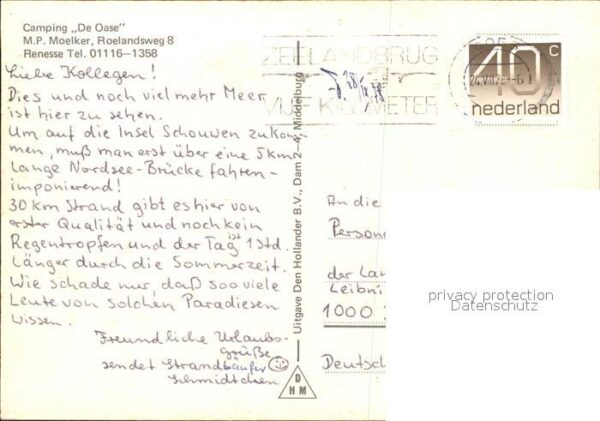 Camping „De Oase"
M.P. Moelker, Roelandsweg 8
Renesse Tel. 01116-1358
Liebe Kollegen!
Dies und noch viel mehr Meer
ist hier zu sehen.
Um auf die Insel Schouwen zu kom-
men, muß man erst über eine 5 km
lange Nordsee-Brücke fahren -
imponierend!
30 km Strand gibt es hier von
erster Qualität und noch kein
Regentropfen und der Tag ist 1 Std.
Länger durch die Sommerzeit.
Wie schade nur, daß soo viele
Leute von solchen Paradiesen
wissen.
Freundliche Urlaubs-
grüße
sendet Strandläufer
Schmidtchen
Uitgave Den Hollander B.V., Dam 2-4, Middelburg
D
HM
ZEELANDBRUG
VIJF KILOMETER
40 c
nederland
An die
Person
der Lan
Leibni
1000
Deutsch
privacy protection
Datenschutz